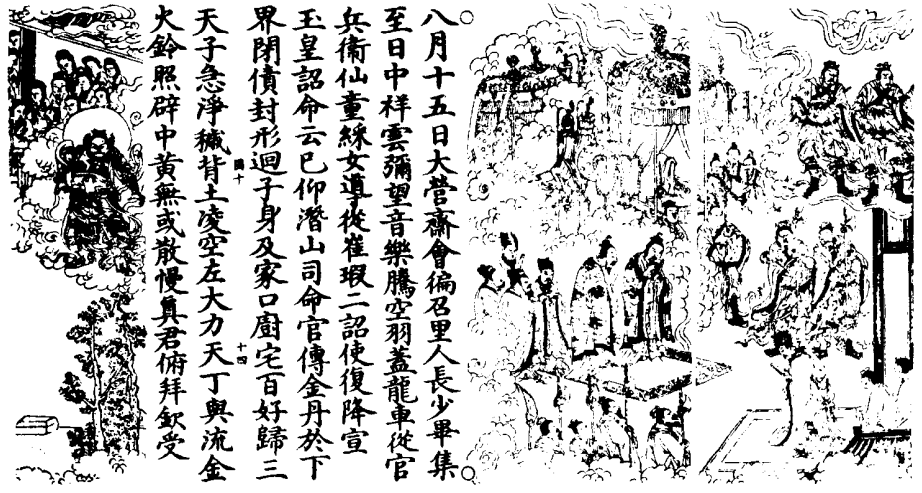 八月十五日大營齋會徧召里人長少畢集
至日中祥雲彌望音樂騰空羽蓋龍車從官
兵衞仙童綵女導從崔瑕二詔使復降宣
玉皇詔命云已仰潛山司命官傳金丹於下
界閉債封形迴子身及家口廚宅百好歸三
天子急淨穢背土凌空左大力天丁與流金
火鈴照辟中黃無或散慢真君俯拜欽受
十四